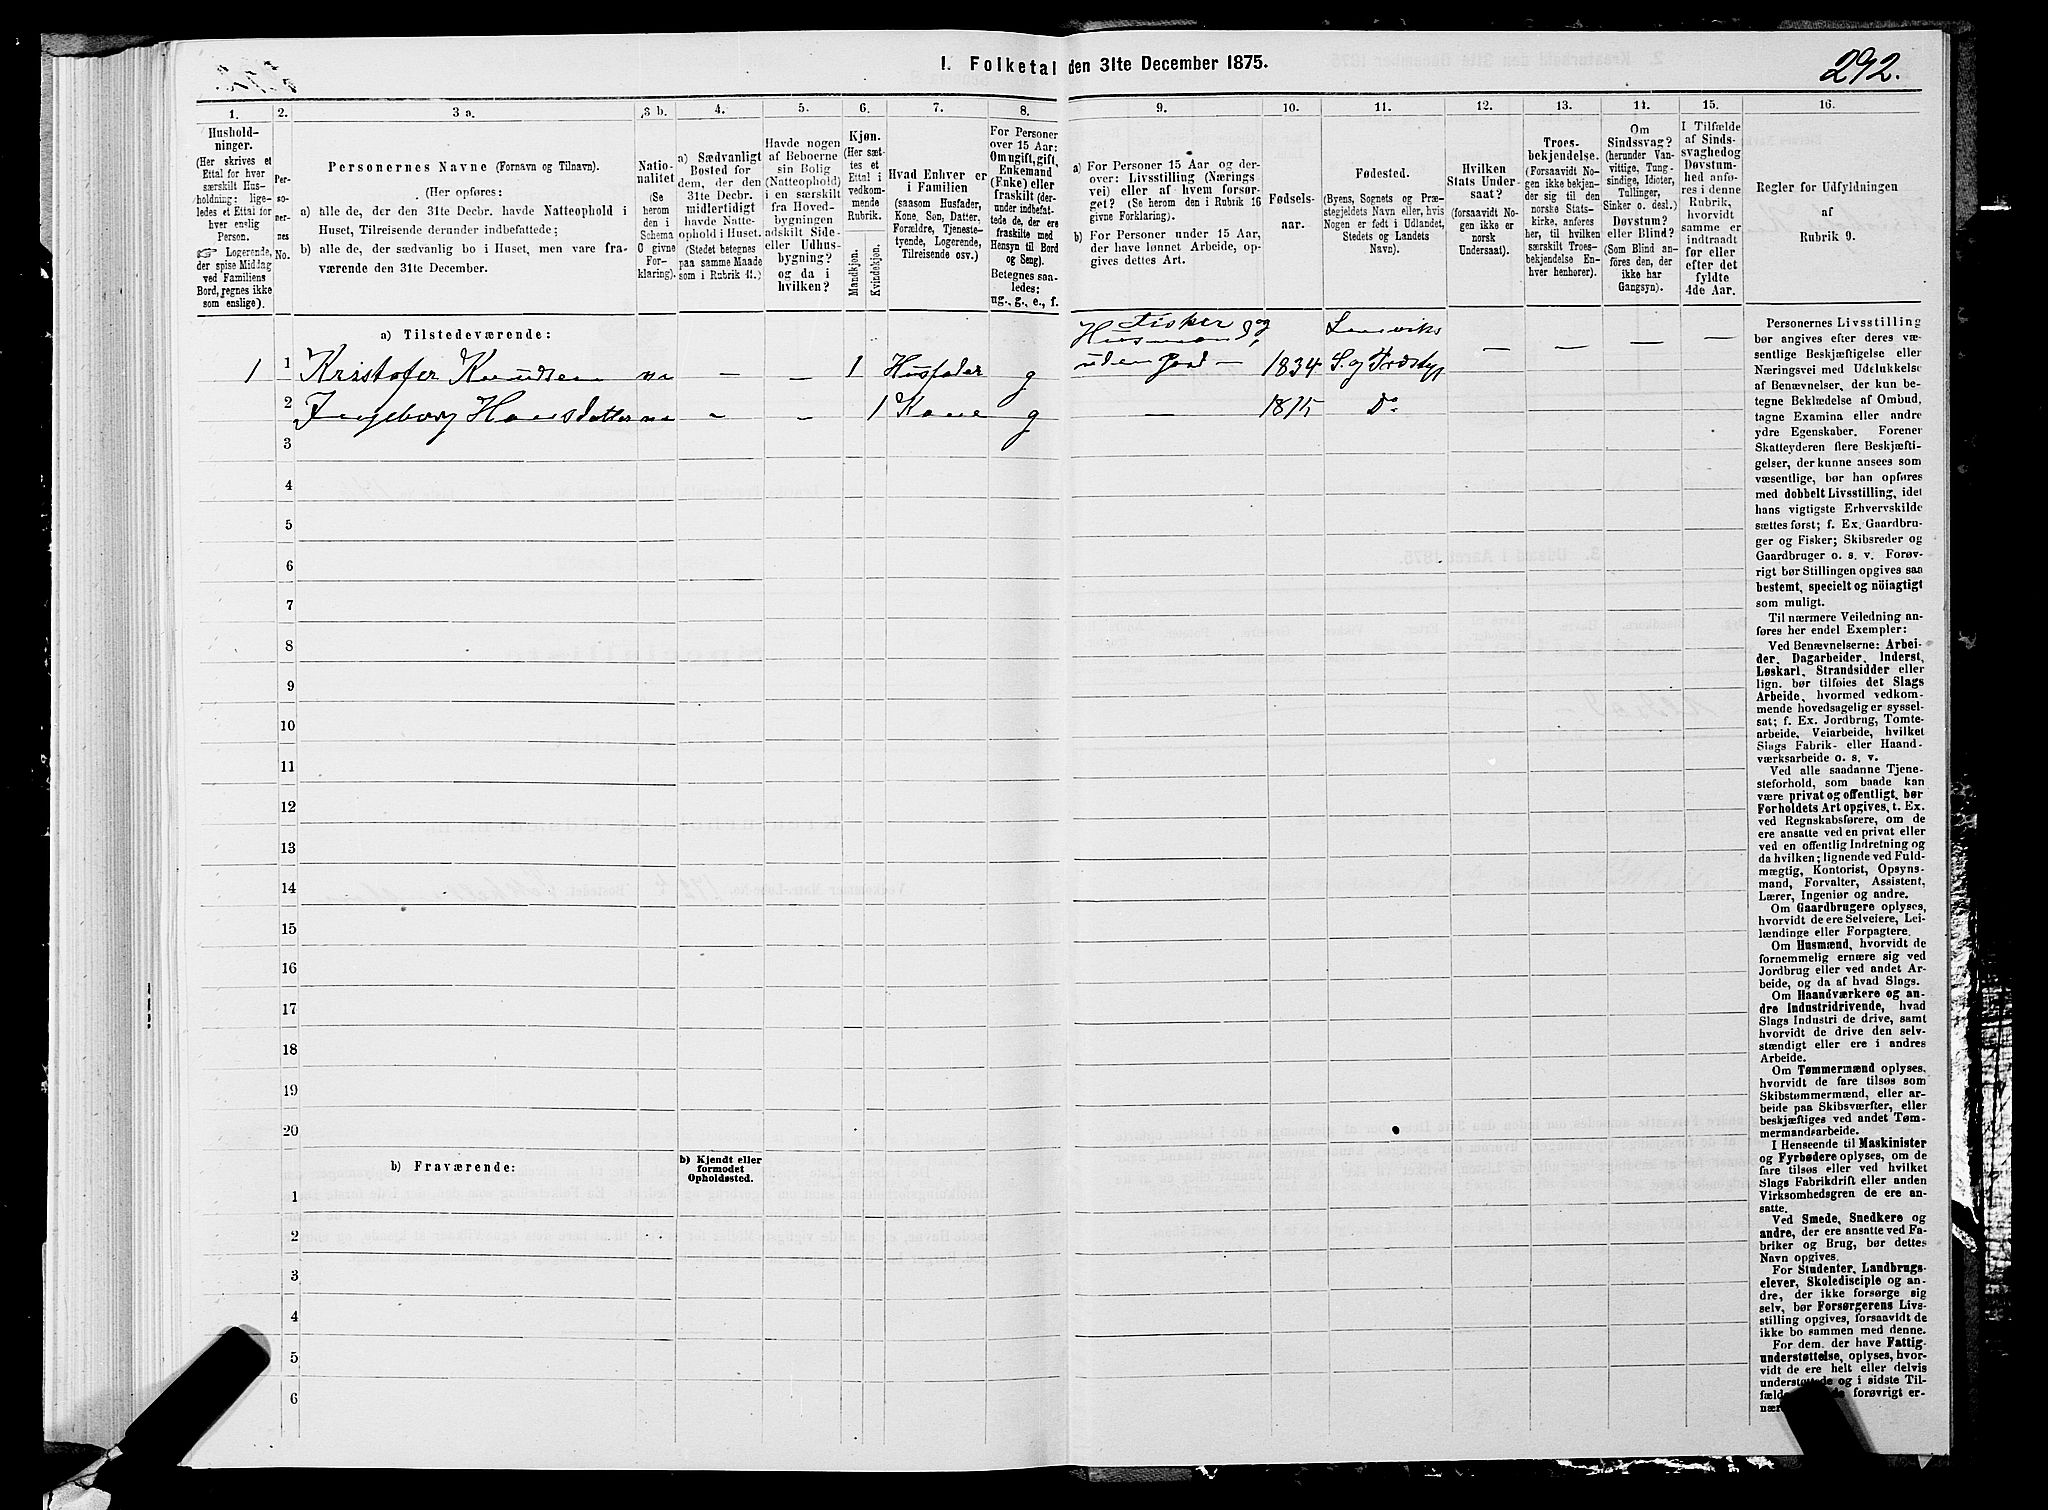 I. Folketal den 31te December 1875.
292.
1.
2.
3 a.
3 b.
4.
5.
6.
7.
8.
9.
10.
11.
12.
13.
14.
15.
16.
Hushold-
ninger.
(Her skrives et
Ettal for hver
særskilt Hus-
holdning; lige-
ledes et Ettal for
hver enslig
Person.
☞ Logerende,
der spise Middag
ved Familiens
Bord, regnes ikke
som enslige).
Per-
so-
ner-
nes
No.
Personernes Navne (Fornavn og Tilnavn).
(Her opføres:
a) alle de, der den 31te Decbr. havde Natteophold i
Huset, Tilreisende derunder indbefattede;
b) alle de, der sædvanlig bo i Huset, men vare fra-
værende den 31te December.
Natio-
nalitet
(Se
herom
den i
Schema
O givne
For-
klaring).
a) Sædvanligt
Bosted for
dem, der den
31te Decbr.
midlertidigt
havde Natte-
ophold i Huset
(Stedet betegnes
paa samme Maade
som i Rubrik 11.)
Havde nogen
af Beboerne
sin Bolig
(Natteophold)
i en særskilt
fra Hoved-
bygningen
adskilt Side-
eller Udhus-
bygning?
og da i
hvilken?
Kjøn.
(Her sæt-
tes et
Ettal i
vedkom-
mende
Rubrik.
Mandkjøn.
Kvindekjøn.
Hvad Enhver er
i Familien
(saasom Husfader,
Kone, Søn, Datter,
Forældre, Tjeneste-
tyende, Logerende,
Tilreisende osv.)
For Personer
over 15 Aar:
Om ugift, gift,
Enkemand
(Enke) eller
fraskilt
(der-
under indbefat-
tede de, der ere
fraskilte med
Hensyn til Bord
og Seng).
Betegnes saa-
ledes:
ug., g., e., f.
a) For Personer 15 Aar og der-
over: Livsstilling (Nærings
vei) eller af hvem forsør-
get? (Se herom den i Rubrik 16
givne Forklaring).
b) For Personer under 15 Aar,
der have lønnet Arbeide, op-
gives dettes Art.
Fødsels-
aar.
Fødested.
(Byens, Sognets og Præ-
stegjeldets Navn eller, hvis
Nogen er født i Udlandet,
Stedets og Landets
Navn).
Hvilken
Stats Under-
saat?
(forsaavidt No-
gen ikke er
norsk
Undersaat).
Troes-
bekjendelse.
(Forsaavidt No-
gen ikke bekjen-
der sig til den
norske Stats-
kirke, anføres
her, til hvilken
særskilt Troes-
bekjendelse En-
hver henhører).
Om
Sindssvag?
(herunder Van-
vittige, Tung-
sindige, Idioter,
Tullinger,
Sinker o. desl.)
Døvstum?
eller Blind?
(Som Blind an-
føres den, der
ikke har
Gangsyn).
I Tilfælde
af Sinds-
svaghed og
Døvstum-
hed anfø-
res i denne
Rubrik,
hvorvidt
samme er
indtraadt
før eller
efter det
fyldte
4de Aar.
Regler for Udfyldningen
af
Rubrik 9.
a) Tilstedeværende:
1 1 Kristofer Knudsen no — — 1 Husfader g Fisker og Husmand uden Jord — 1834 Lensviks S. og Prdstgj — — — —
2 Ingeborg Hansdatter no — — 1 Kone g — 1815 Do
3
4
5
6
7
8
9
10
11
12
13
14
15
16
17
18
19
20
b) Fraværende:
b) Kjendt eller
formodet
Opholdssted.
1
2
3
4
5
6
Personernes Livsstilling
bør angives efter deres væ-
sentlige Beskjæftigelse eller
Næringsvei med Udelukkelse
af Benævnelser, der kun be-
tegne Beklædelse af Ombud,
tagne Examina eller andre
ydre Egenskaber. Forener
Skatteyderen flere Beskjæfti-
gelser, der kunne ansees som
væsentlige, bør han opføres
med dobbelt Livsstilling, idet
hans vigtigste Erhvervskilde
sættes først; f. Ex. Gaardbru-
ger og Fisker; Skibsreder og
Gaardbruger o. s. v. Forøv-
rigt bør Stillingen opgives saa
bestemt, specielt og nöiagtigt
som muligt.
Til nærmere Veiledning an-
føres her endel Exempler:
Ved Benævnelserne: Arbei-
der, Dagarbeider, Inderst,
Løskarl, Strandsidder eller
lign. bør tilføies det Slags
Arbeide, hvormed vedkom-
mende hovedsagelig er syssel-
sat; f. Ex. Jordbrug, Tomte-
arbeide, Veiarbeide, hvilket
Slags Fabrik- eller Haand-
værksarbeide o. s. v.
Ved alle saadanne Tjene-
steforhold, som baade kan
være privat og offentligt, bør
Forholdets Art opgives, t. Ex.
ved Regnskabsførere, om de
ere ansatte ved en privat eller
ved en offentlig Indretning og
da hvilken; lignende ved Fuld-
mægtig, Kontorist, Opsyns-
mand, Forvalter, Assistent,
Lærer, Ingeniør og andre.
Om Gaardbrugere oplyses,
hvorvidt de ere Selveiere, Lei-
lændinge eller Forpagtere.
Om Husmænd, hvorvidt de
fornemmelig ernære sig ved
Jordbrug eller ved andet Ar-
beide, og da af hvad Slags.
Om Haandværkere og an-
dre Industridrivende, hvad
Slags Industri de drive, samt
hvorvidt de drive den selv-
stændigt eller ere i andres
Arbeide.
Om Tømmermænd oplyses,
hvorvidt de fare tilsøs som
Skibstømmermænd, eller ar-
beide paa Skibsværfter, eller
beskjæftiges ved andet Tøm-
mermandsarbeide.
I Henseende til Maskinister
og Fyrbødere oplyses, om de
fare tilsøs eller ved hvilket
Slags Fabrikdrift eller anden
Virksomhedsgren de ere an-
satte.
Ved Smede, Snedkere og
andre, der ere ansatte ved Fa-
briker og Brug, bør dettes
Navn opgives.
For Studenter, Landbrugs-
elever, Skoledisciple og an-
dre, der ikke forsørge sig
selv, bør Forsørgerens Livs-
stilling opgives, forsaavidt de
ikke bo sammen med denne.
For dem, der have Fattig-
understøttelse, oplyses, hvor-
vidt de ere helt eller delvis
understøttede og i sidste Til-
fælde forøvrigt er-
nær